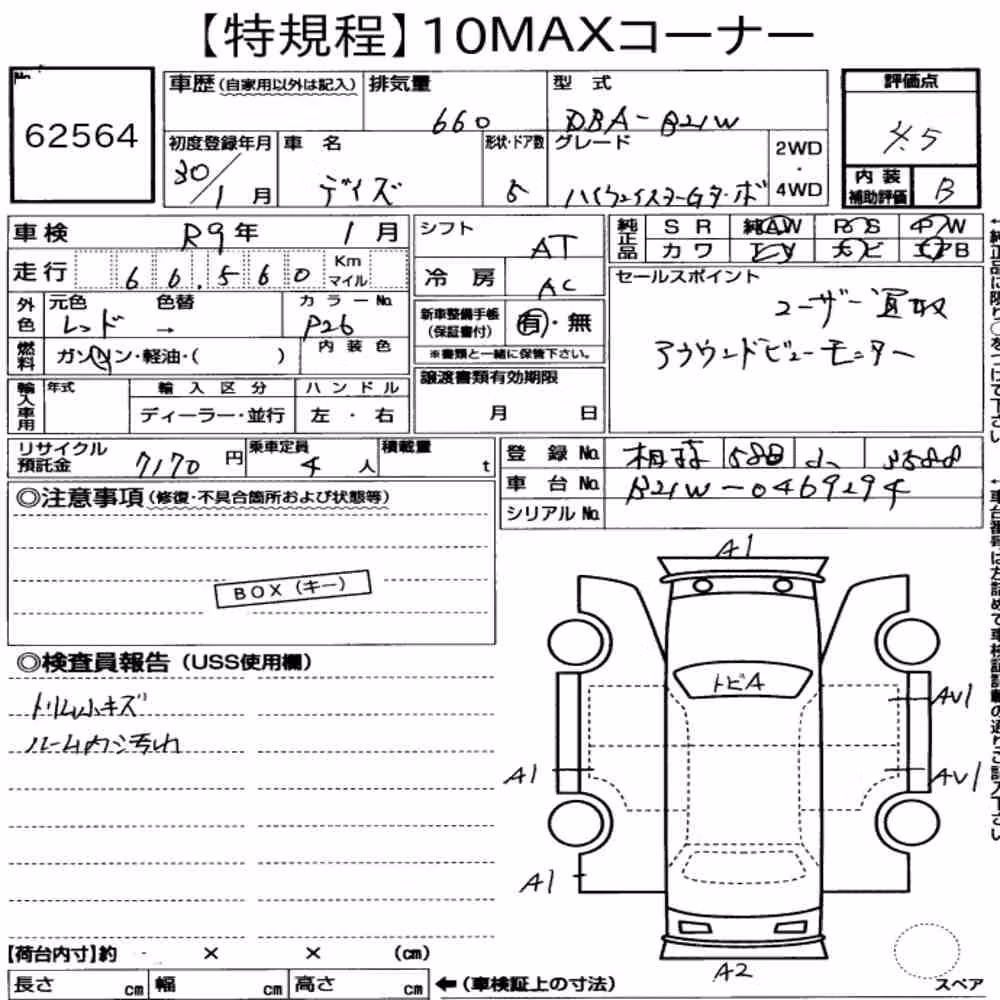 【特規程】10MAXコーナー
No. 62564
車歴 (自家用以外は記入) 排気量 660 型式 DBA-B21W
評価点 4.5
初度登録年月 30/1月 車名 デイズ 形状・ドア数 5 グレード ハイウェイスターGターボ 2WD・4WD
内装補助評価 B
車検 R9年 1月 シフト AT
純正品 SR 純AW PS PW
カワ TV ナビ エアB
走行 66,560 Km マイル 冷房 AC
セールスポイント
ユーザー買取
アラウンドビューモニター
外色 元色 レッド 色替 → カラーNo. P26
新車整備手帳 (保証書付) 有・無
※書類と一緒に保管下さい。
燃料 ガソリン・軽油・( ) 内装色
譲渡書類有効期限 月 日
輸入車用 年式 輸入区分 ハンドル
ディーラー・並行 左・右
リサイクル預託金 7170円 乗車定員 4人 積載量 t
登録No. 相模 588
車台No. B21W-0469294
シリアルNo.
◎注意事項 (修復・不具合箇所および状態等)
BOX (キー)
◎検査員報告 (USS使用欄)
トリム小キズ
ルーム内汚れ
A1
トビA
AU1
A1
AU1
A1
A2
スペア
【荷台内寸】約 × × (cm)
長さ cm 幅 cm 高さ cm ←(車検証上の寸法)